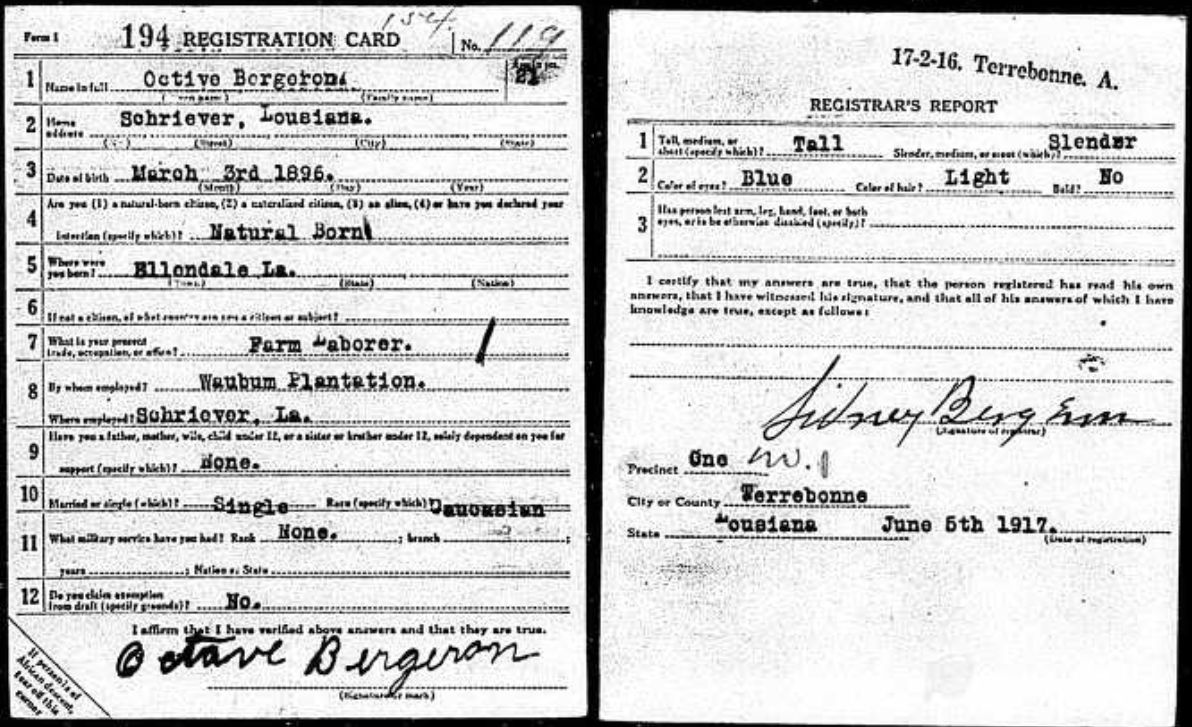 1st.
Form 1 194 REGISTRATION CARD No. 119
1 Name in full Octive Bergeron. 21
(Given name) (Family name)
2 Home address Schriever, Lousiana.
(No.) (Street) (City) (State)
3 Date of birth March 3rd 1896.
(Month) (Day) (Year)
4 Are you (1) a natural-born citizen, (2) a naturalized citizen, (3) an alien, (4) or have you declared your
intention (specify which)? Natural Born
5 Where were you born? Ellondale La.
(Town) (State) (Nation)
6 If not a citizen, of what country are you a citizen or subject?
7 What is your present trade, occupation, or office? Farm Laborer.
8 By whom employed? Waubum Plantation.
Where employed? Schriever, La.
9 Have you a father, mother, wife, child under 12, or a sister or brother under 12, solely dependent on you for
support (specify which)? None.
10 Married or single (which)? Single Race (specify which)? Caucasian
11 What military service have you had? Rank None. ; branch ;
years ; Nation or State
12 Do you claim exemption from draft (specify grounds)? No.
I affirm that I have verified above answers and that they are true.
Octave Bergeron
(Signature or mark)
If person is of African descent, tear off this corner
17-2-16. Terrebonne. A.
REGISTRAR'S REPORT
1 Tall, medium, or short (specify which)? Tall Slender, medium, or stout (which)? Slender
2 Color of eyes? Blue Color of hair? Light Bald? No
3 Has person lost arm, leg, hand, foot, or both
eyes, or is he otherwise disabled (specify)?
I certify that my answers are true, that the person registered has read his own
answers, that I have witnessed his signature, and that all of his answers of which I have
knowledge are true, except as follows:
Sidney Bergeron
(Signature of registrar)
Precinct One
City or County Terrebonne
State Lousiana June 5th 1917.
(Date of registration)